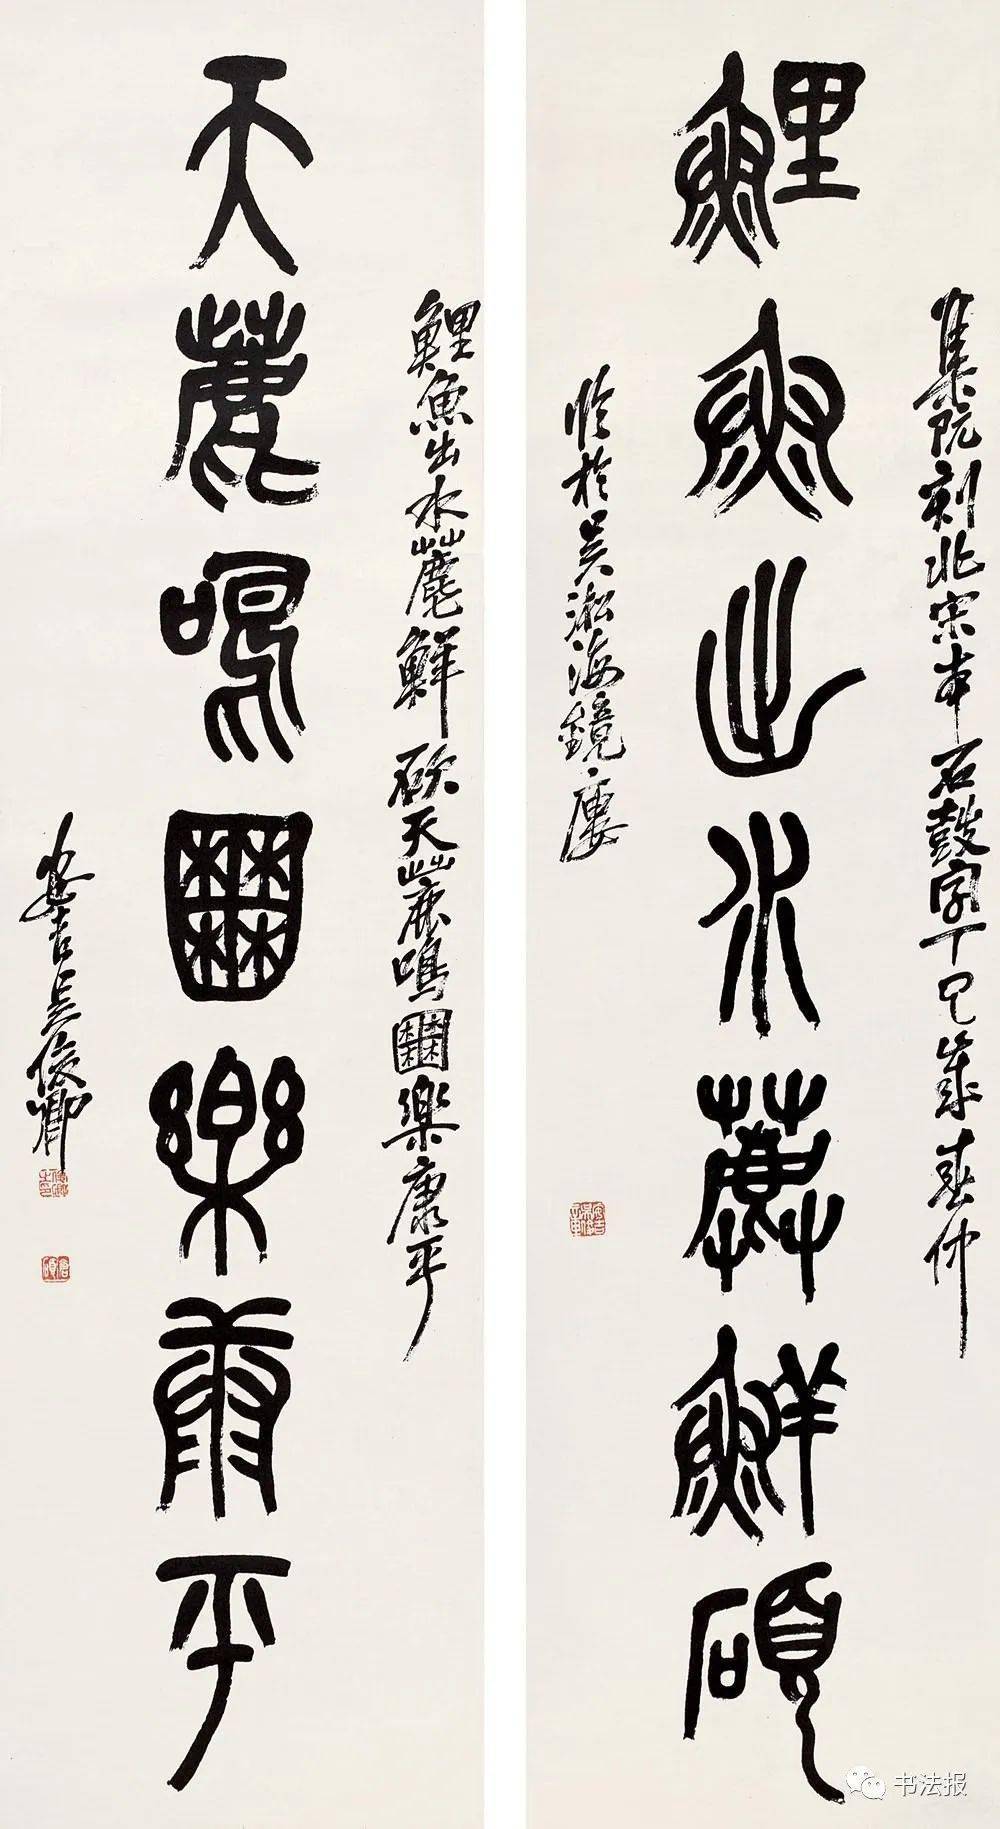 集阮刻北宋本石鼓字丁巳歲春仲
鯉魚出水鮮碩
時於吳淞海鏡廔
鯉魚出水鮮碩天鹿鳴囿樂康平
天鹿鳴囿樂康平
安吉吳俊卿
俊卿之印
倉碩
书法报